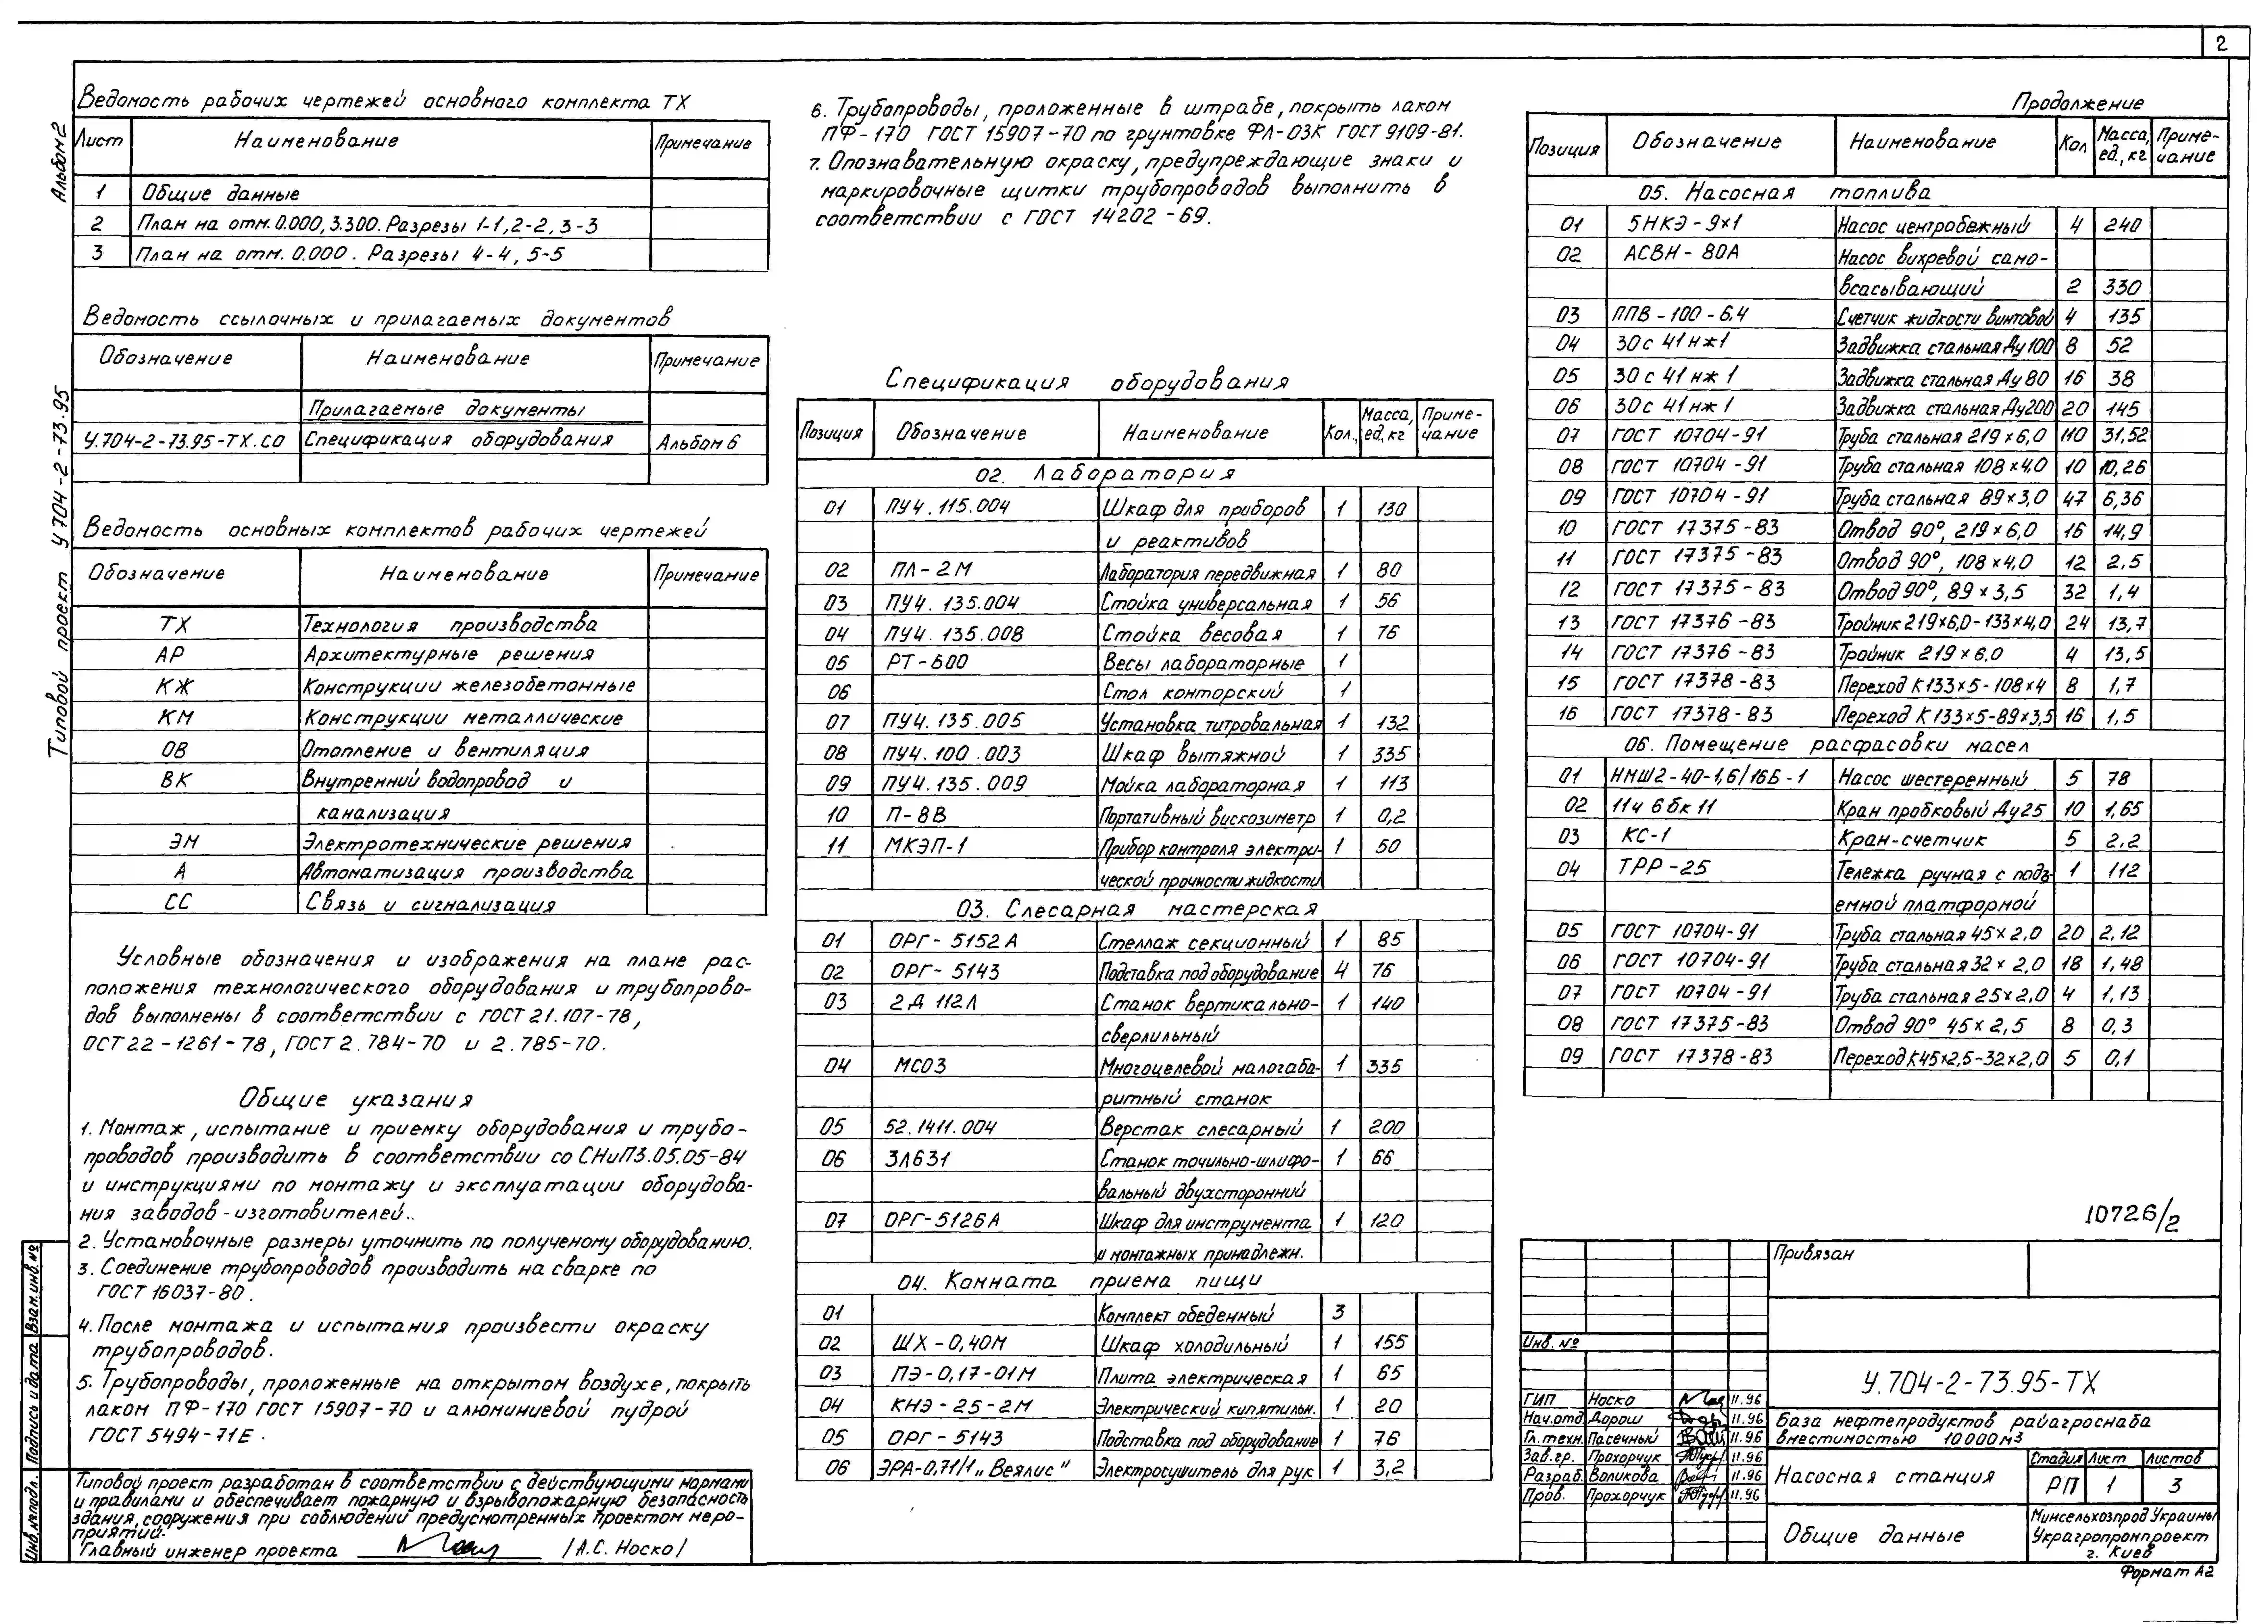 2
Альбом2
Типовой проект У704-2-73.95
Ведомость рабочих чертежей основного комплекта ТХ
Лист Наименование Примечание
1 Общие данные
2 План на отм. 0.000, 3.300. Разрезы 1-1, 2-2, 3-3
3 План на отм. 0.000. Разрезы 4-4, 5-5
Ведомость ссылочных и прилагаемых документов
Обозначение Наименование Примечание
Прилагаемые документы
У.704-2-73.95-ТХ.СО Спецификация оборудования Альбом 6
Ведомость основных комплектов рабочих чертежей
Обозначение Наименование Примечание
ТХ Технология производства
АР Архитектурные решения
КЖ Конструкции железобетонные
КМ Конструкции металлические
ОВ Отопление и вентиляция
ВК Внутренний водопровод и
канализация
ЭМ Электротехнические решения
А Автоматизация производства
СС Связь и сигнализация
Условные обозначения и изображения на плане рас-
положения технологического оборудования и трубопрово-
дов выполнены в соответствии с ГОСТ 21.107-78,
ОСТ22-1261-78, ГОСТ 2.784-70 и 2.785-70.
Общие указания
1. Монтаж, испытание и приемку оборудования и трубо-
проводов производить в соответствии со СНиП3.05.05-84
и инструкциями по монтажу и эксплуатации оборудова-
ния заводов-изготовителей..
2. Установочные размеры уточнить по полученому оборудованию.
3. Соединение трубопроводов производить на сварке по
ГОСТ 16037-80.
4. После монтажа и испытания произвести окраску
трубопроводов.
5. Трубопроводы, проложенные на открытом воздухе, покрыть
лаком ПФ-170 ГОСТ 15907-70 и алюминиевой пудрой
ГОСТ 5494-71Е.
Типовой проект разработан в соответствии с действующими нормами
и правилами и обеспечивает пожарную и взрывопожарную безопасность
здания, сооружения при соблюдении предусмотренных проектом меро-
приятий.
Главный инженер проекта /А.С. Носко/
Взам.инв.№
Подпись и дата
Инв.№подл.
6. Трубопроводы, проложенные в штрабе, покрыть лаком
ПФ-170 ГОСТ 15907-70 по грунтовке ФЛ-03К ГОСТ 9109-81.
7. Опознавательную окраску, предупреждающие знаки и
маркировочные щитки трубопроводов выполнить в
соответствии с ГОСТ 14202-69.
Спецификация оборудования
Позиция Обозначение Наименование Кол., Масса, ед., кг Приме-чание
02. Лаборатория
01 ПУ4.115.004 Шкаф для приборов 1 130
и реактивов
02 ПЛ-2М Лаборатория передвижная 1 80
03 ПУ4.135.004 Стойка универсальная 1 56
04 ПУ4.135.008 Стойка весовая 1 76
05 РТ-600 Весы лабораторные 1
06 Стол конторский 1
07 ПУ4.135.005 Установка титровальная 1 132
08 ПУ4.100.003 Шкаф вытяжной 1 335
09 ПУ4.135.009 Мойка лабораторная 1 113
10 П-8В Портативный вискозиметр 1 0,2
11 МКЭП-1 Прибор контроля электри- 1 50
ческой прочности жидкости
03. Слесарная мастерская
01 ОРГ-5152А Стеллаж секционный 1 85
02 ОРГ-5143 Подставка под оборудование 4 76
03 2Д 112Л Станок вертикально- 1 140
сверлильный
04 МС03 Многоцелевой малогаба- 1 335
ритный станок
05 52.1411.004 Верстак слесарный 1 200
06 3Л631 Станок точильно-шлифо- 1 66
вальный двухсторонний
07 ОРГ-5126А Шкаф для инструмента 1 120
и монтажных принадлежн.
04. Комната приема пищи
01 Комплект обеденный 3
02 ШХ-0,40М Шкаф холодильный 1 155
03 ПЭ-0,17-01М Плита электрическая 1 65
04 КНЭ-25-2М Электрический кипятильн. 1 20
05 ОРГ-5143 Подставка под оборудование 1 76
06 ЭРА-0,71/1 „Веялис" Электросушитель для рук 1 3,2
Продолжение
Позиция Обозначение Наименование Кол Масса, ед., кг Приме-чание
05. Насосная топлива
01 5НКЭ-9х1 Насос центробежный 4 240
02 АСВН-80А Насос вихревой само-
всасывающий 2 330
03 ППВ-100-6,4 Счетчик жидкости винтовой 4 135
04 30с 41нж1 Задвижка стальная Ду100 8 52
05 30с 41нж1 Задвижка стальная Ду 80 16 38
06 30с 41нж1 Задвижка стальная Ду200 20 145
07 ГОСТ 10704-91 Труба стальная 219х6,0 110 31,52
08 ГОСТ 10704-91 Труба стальная 108х4.0 10 10,26
09 ГОСТ 10704-91 Труба стальная 89х3,0 47 6,36
10 ГОСТ 17375-83 Отвод 90°, 219х6,0 16 14,9
11 ГОСТ 17375-83 Отвод 90°, 108х4,0 12 2,5
12 ГОСТ 17375-83 Отвод 90°, 89х3,5 32 1,4
13 ГОСТ 17376-83 Тройник 219х6,0-133х4,0 24 13,7
14 ГОСТ 17376-83 Тройник 219х6,0 4 13,5
15 ГОСТ 17378-83 Переход К133х5-108х4 8 1,7
16 ГОСТ 17378-83 Переход К133х5-89х3,5 16 1,5
06. Помещение расфасовки масел
01 НМШ2-40-1,6/16Б-1 Насос шестеренный 5 78
02 11ч 6бк 11 Кран пробковый Ду25 10 1,65
03 КС-1 Кран-счетчик 5 2,2
04 ТРР-25 Тележка ручная с подъ- 1 112
емной платформой
05 ГОСТ 10704-91 Труба стальная 45х2,0 20 2,12
06 ГОСТ 10704-91 Труба стальная 32х2,0 18 1,48
07 ГОСТ 10704-91 Труба стальная 25х2,0 4 1,13
08 ГОСТ 17375-83 Отвод 90° 45х2,5 8 0,3
09 ГОСТ 17378-83 Переход К45х2,5-32х2,0 5 0,1
10726/2
Привязан
Инв. №
У.704-2-73.95-ТХ
ГИП Носко 11.96
Нач.отд Дорош 11.96
Гл.техн. Пасечный 11.96
Зав.гр. Прохорчук 11.96
Разраб. Воликова 11.96
Пров. Прохорчук 11.96
База нефтепродуктов райагроснаба
вместимостью 10000м3
Насосная станция
Стадия Лист Листов
РП 1 3
Общие данные
Минсельхозпрод Украины
Украгропромпроект
г. Киев
Формат А2